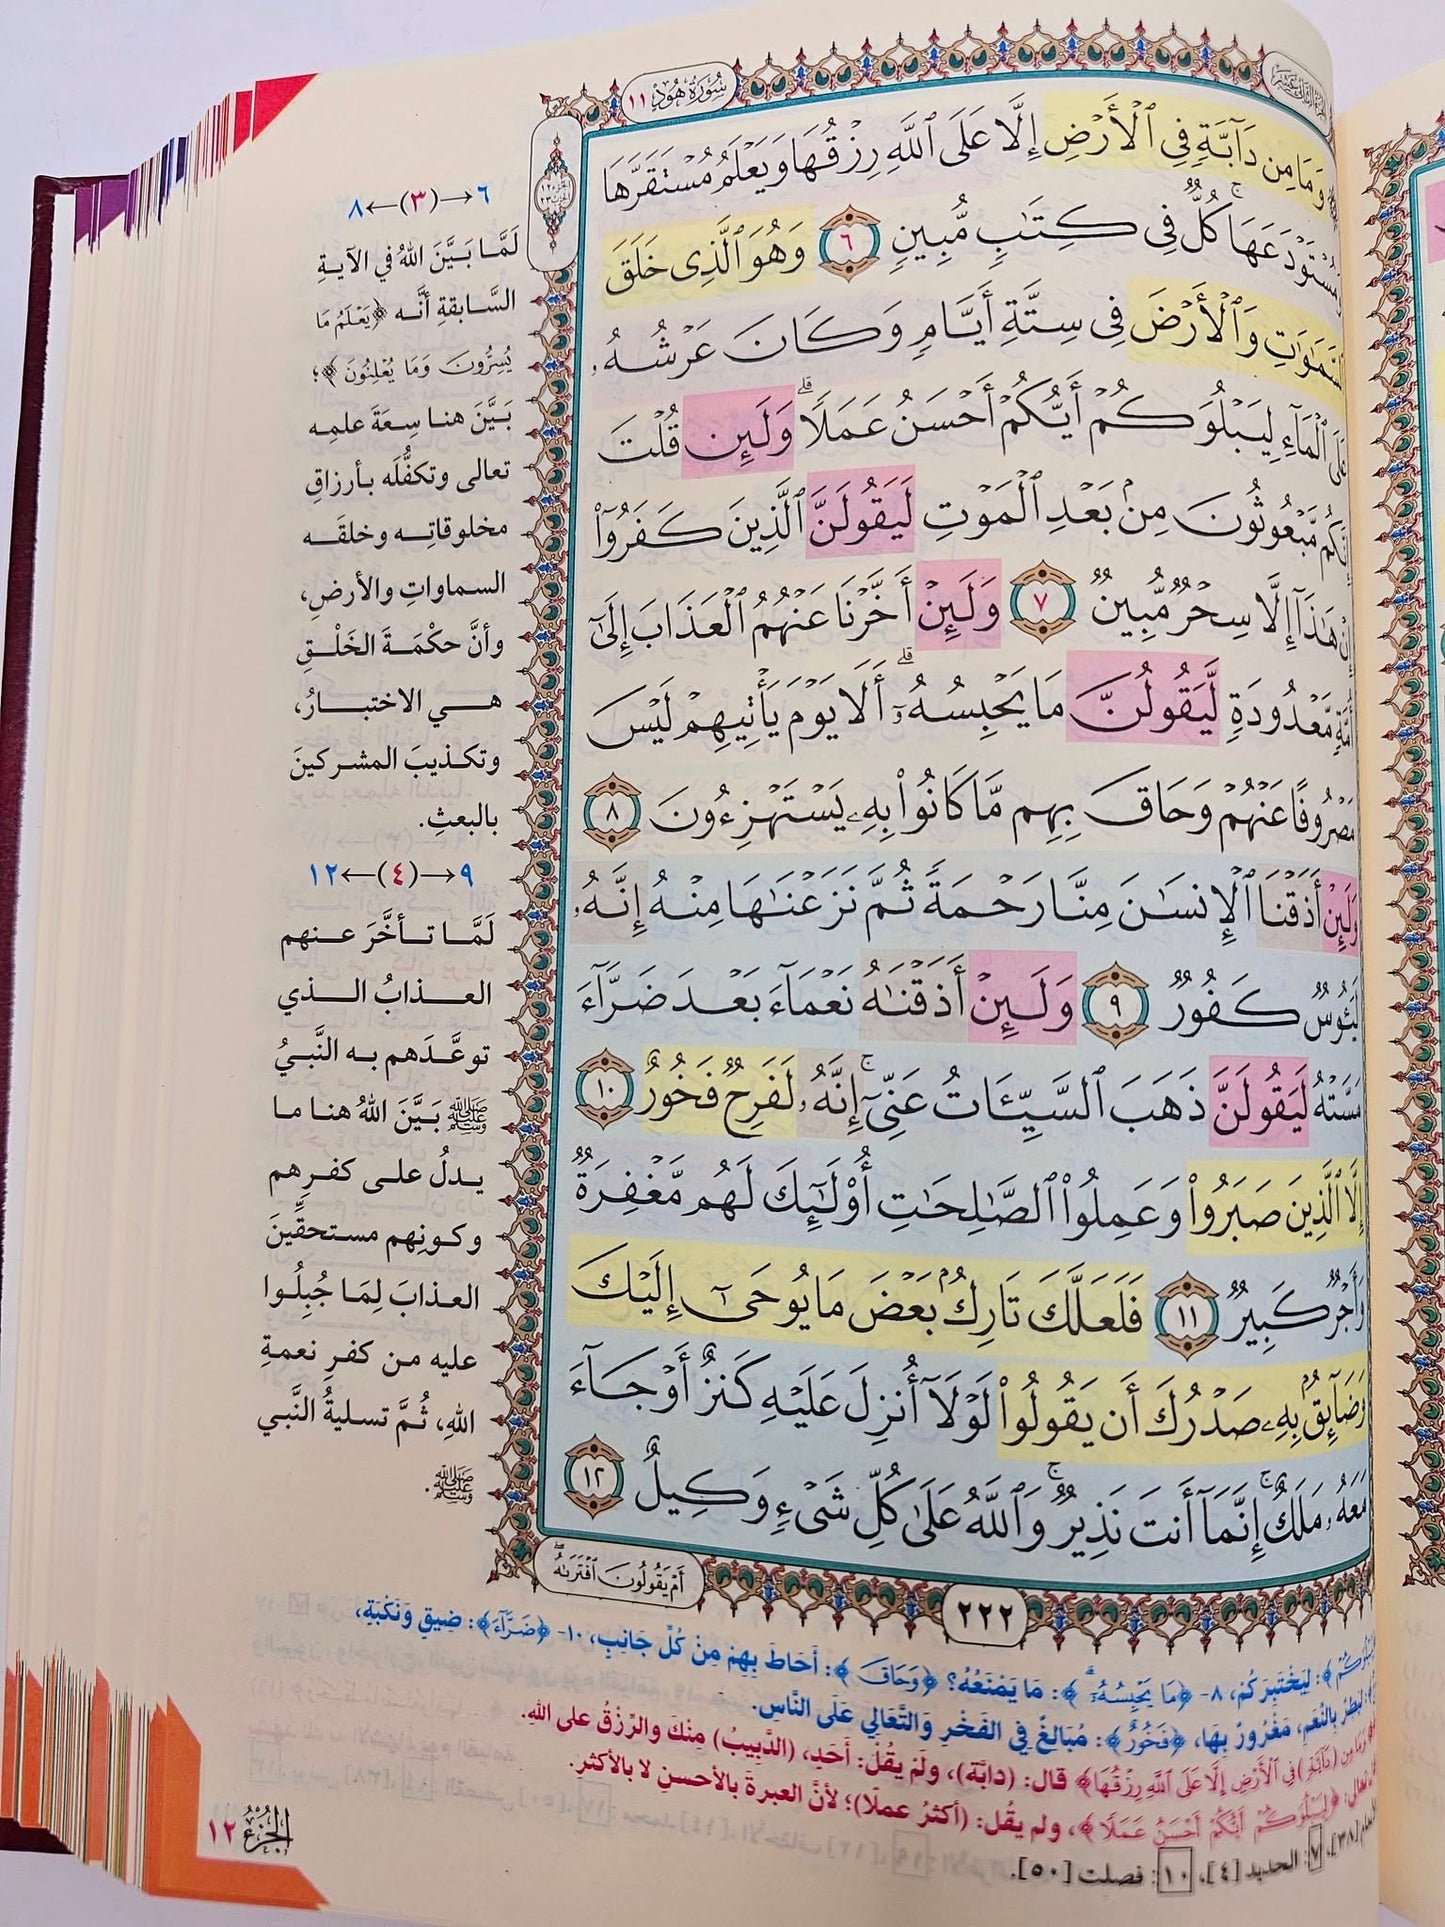 سُورَةُ هُودٍ ١١
وَمَا مِن دَآبَّةٍ فِى ٱلْأَرْضِ إِلَّا عَلَى ٱللَّهِ رِزْقُهَا وَيَعْلَمُ مُسْتَقَرَّهَا
وَمُسْتَوْدَعَهَا ۚ كُلٌّ فِى كِتَٰبٍ مُّبِينٍ ٦ وَهُوَ ٱلَّذِى خَلَقَ
ٱلسَّمَٰوَٰتِ وَٱلْأَرْضَ فِى سِتَّةِ أَيَّامٍ وَكَانَ عَرْشُهُۥ
عَلَى ٱلْمَآءِ لِيَبْلُوَكُمْ أَيُّكُمْ أَحْسَنُ عَمَلًا ۗ وَلَئِن قُلْتَ
إِنَّكُم مَّبْعُوثُونَ مِنۢ بَعْدِ ٱلْمَوْتِ لَيَقُولَنَّ ٱلَّذِينَ كَفَرُوٓا۟
إِنْ هَٰذَآ إِلَّا سِحْرٌ مُّبِينٌ ٧ وَلَئِنْ أَخَّرْنَا عَنْهُمُ ٱلْعَذَابَ إِلَىٰٓ
أُمَّةٍ مَّعْدُودَةٍ لَّيَقُولُنَّ مَا يَحْبِسُهُۥٓ ۗ أَلَا يَوْمَ يَأْتِيهِمْ لَيْسَ
مَصْرُوفًا عَنْهُمْ وَحَاقَ بِهِم مَّا كَانُوا۟ بِهِۦ يَسْتَهْزِءُونَ ٨
وَلَئِنْ أَذَقْنَا ٱلْإِنسَٰنَ مِنَّا رَحْمَةً ثُمَّ نَزَعْنَٰهَا مِنْهُ إِنَّهُۥ
لَيَـُٔوسٌ كَفُورٌ ٩ وَلَئِنْ أَذَقْنَٰهُ نَعْمَآءَ بَعْدَ ضَرَّآءَ
مَسَّتْهُ لَيَقُولَنَّ ذَهَبَ ٱلسَّيِّـَٔاتُ عَنِّىٓ ۚ إِنَّهُۥ لَفَرِحٌ فَخُورٌ ١٠
إِلَّا ٱلَّذِينَ صَبَرُوا۟ وَعَمِلُوا۟ ٱلصَّٰلِحَٰتِ أُو۟لَٰٓئِكَ لَهُم مَّغْفِرَةٌ
وَأَجْرٌ كَبِيرٌ ١١ فَلَعَلَّكَ تَارِكٌۢ بَعْضَ مَا يُوحَىٰٓ إِلَيْكَ
وَضَآئِقٌۢ بِهِۦ صَدْرُكَ أَن يَقُولُوا۟ لَوْلَآ أُنزِلَ عَلَيْهِ كَنزٌ أَوْ جَآءَ
مَعَهُۥ مَلَكٌ ۚ إِنَّمَآ أَنتَ نَذِيرٌ ۚ وَٱللَّهُ عَلَىٰ كُلِّ شَىْءٍ وَكِيلٌ ١٢
أَمْ يَقُولُونَ ٱفْتَرَىٰهُ
٢٢٢
٦→(٣)←٨
لَمَّا بَيَّنَ اللهُ في الآيةِ
السَّابقةِ أنَّه ﴿يَعْلَمُ مَا
يُسِرُّونَ وَمَا يُعْلِنُونَ﴾؛
بَيَّنَ هنا سِعَةَ علمِه
تعالى وتكفُّلَه بأرزاقِ
مخلوقاتِه وخلقَه
السماواتِ والأرضِ،
وأنَّ حكْمَةَ الخَلْقِ
هي الاختبارُ،
وتكذيبَ المشركينَ
بالبعثِ.
٩→(٤)←١٢
لَمَّا تأخَّرَ عنهم
العذابُ الذي
توعَّدَهم به النَّبيُ
ﷺ بَيَّنَ اللهُ هنا ما
يدلُ على كفرِهم
وكونِهم مستحقِّينَ
العذابَ لِمَا جُبِلُوا
عليه من كفرِ نعمةِ
اللهِ، ثُمَّ تسليةُ النَّبي
ﷺ.
لِيَخْتَبِرَكُمْ، ٨- ﴿مَا يَحْبِسُهُۥٓ ۗ﴾: مَا يَمْنَعُهُ؟ ﴿وَحَاقَ﴾: أَحَاطَ بِهِمْ مِنْ كُلِّ جَانِبٍ، ١٠- ﴿ضَرَّآءَ﴾: ضِيقٍ وَنَكْبَةٍ،
بِالنِّعَمِ، مَغْرُورٌ بِهَا، ﴿فَخُورٌ﴾: مُبَالِغٌ فِي الفَخْرِ وَالتَّعَالِي عَلَى النَّاسِ.
(دَآبَّةٍ) فِي ٱلْأَرْضِ إِلَّا عَلَى ٱللَّهِ رِزْقُهَا﴾ قال: (دابَّة)، ولَمْ يقُلْ: أَحَدٍ، (الدَّبِيبُ) مِنْكَ والرِّزْقُ على اللهِ.
﴿لِيَبْلُوَكُمْ أَيُّكُمْ أَحْسَنُ عَمَلًا﴾، ولم يقُل: (أكثرُ عملًا)؛ لأنَّ العبرةَ بالأحسنِ لا بالأكثرِ.
[٣٨]، ٧: الحديد [٤]، ١٠: فصلت [٥٠].
الجُزْءُ ١٢